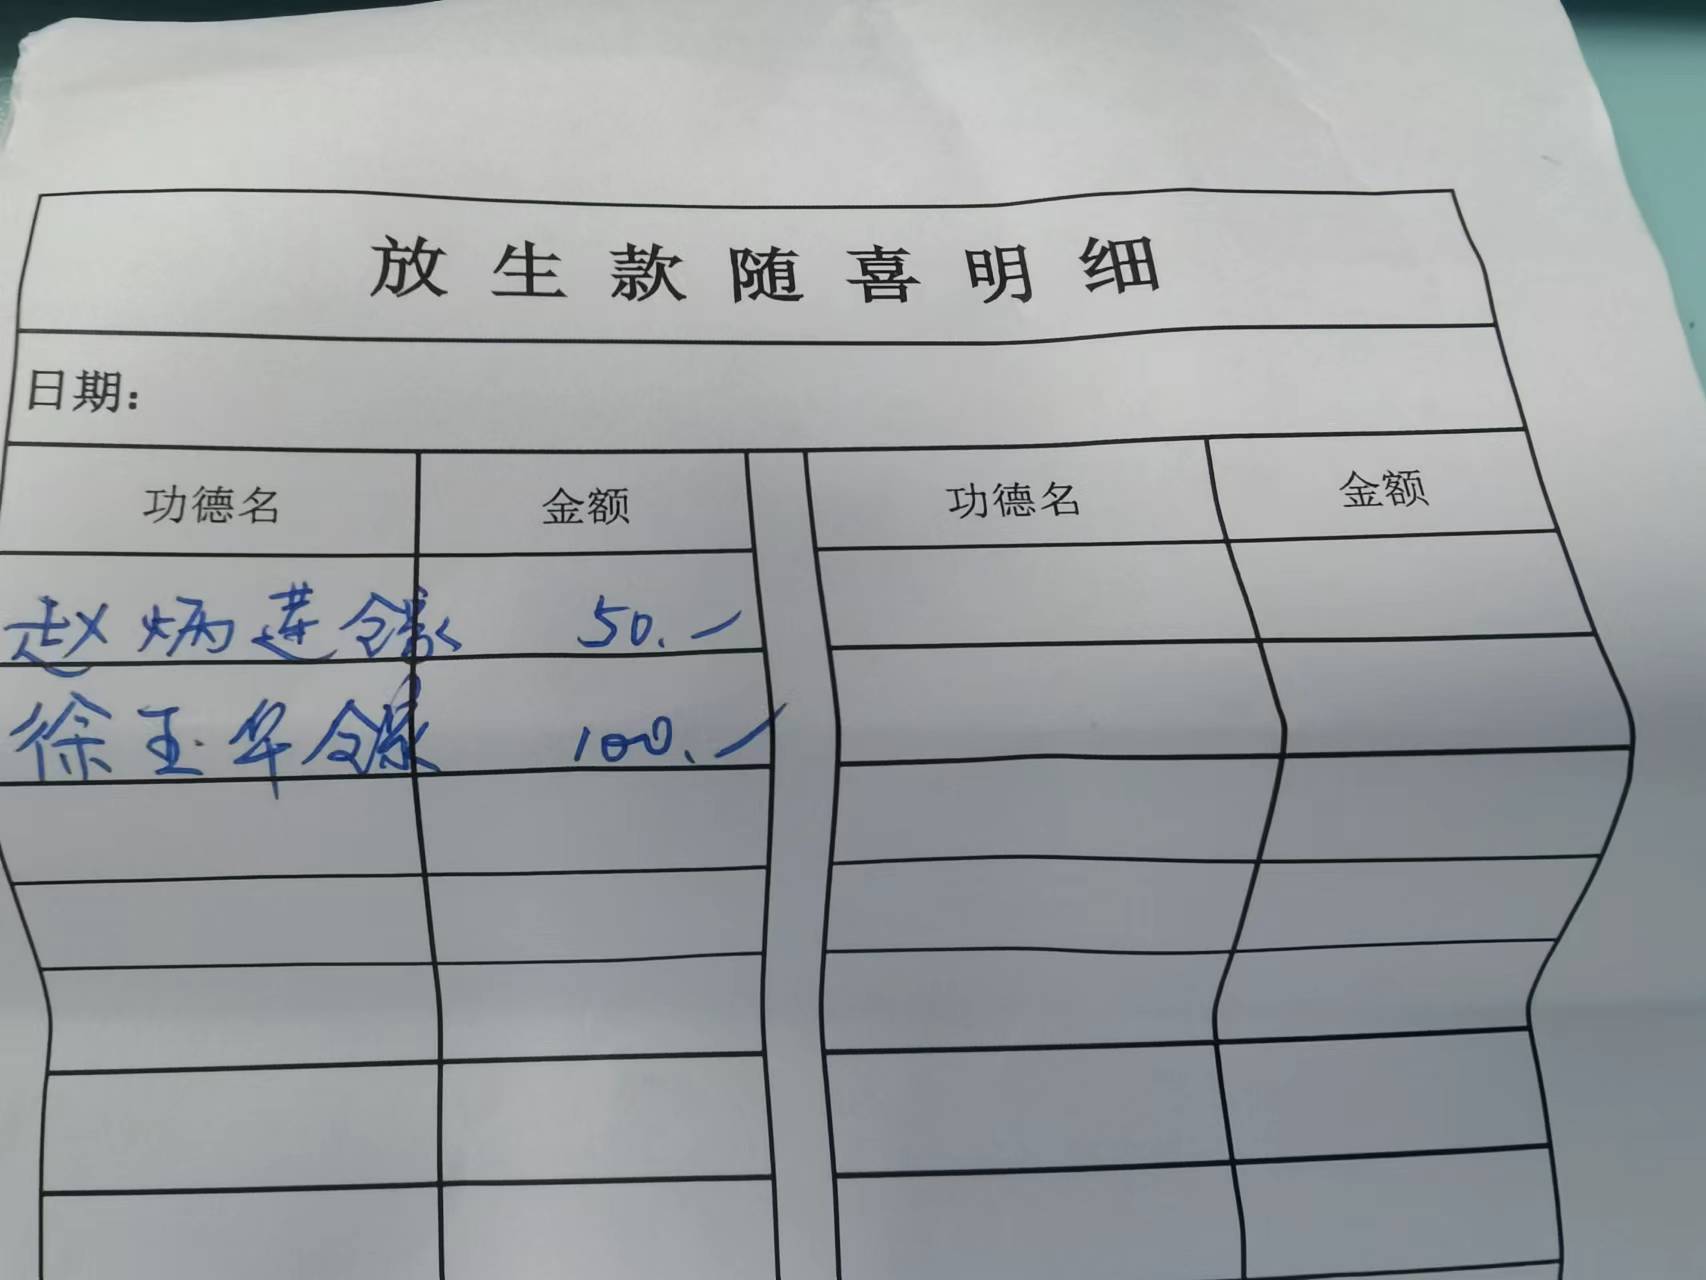 放生款随喜明细
日期：
功德名 金额 功德名 金额
赵炳莲合家 50.-
徐玉华合家 100.-